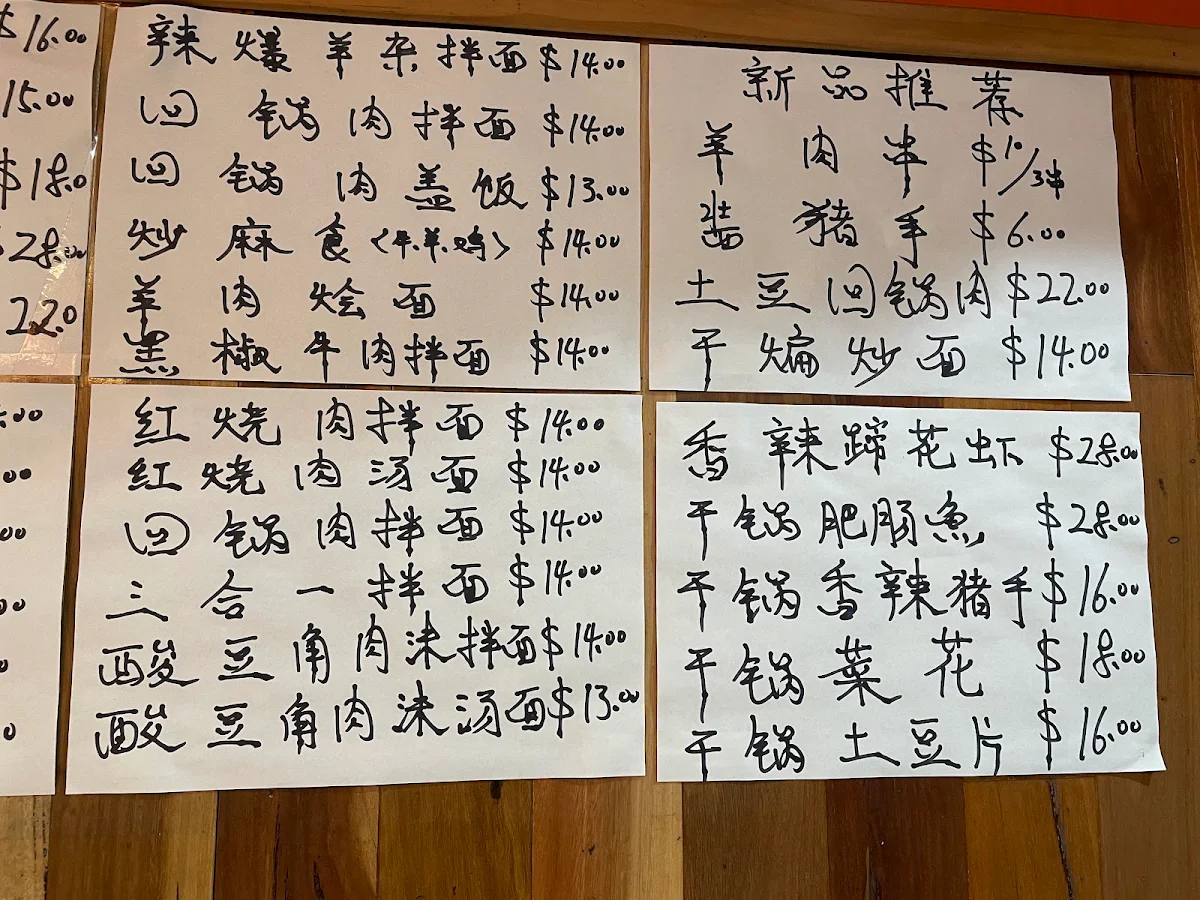 $16.00
15.00
$18.0
$28.00
22.0
辣爆羊杂拌面 $14.00
回锅肉拌面 $14.00
回锅肉盖饭 $13.00
炒麻食(牛.羊.鸡) $14.00
羊肉烩面 $14.00
黑椒牛肉拌面 $14.00
新品推荐
羊肉串 $10/3串
猪手 $6.00
土豆回锅肉 $22.00
干煸炒面 $14.00
.00
.00
00
00
0
0
红烧肉拌面 $14.00
红烧肉汤面 $14.00
回锅肉拌面 $14.00
三合一拌面 $14.00
酸豆角肉沫拌面 $14.00
酸豆角肉沫汤面 $13.00
香辣蹄花虾 $28.00
干锅肥肠魚 $28.00
干锅香辣猪手 $16.00
干锅菜花 $18.00
干锅土豆片 $16.00